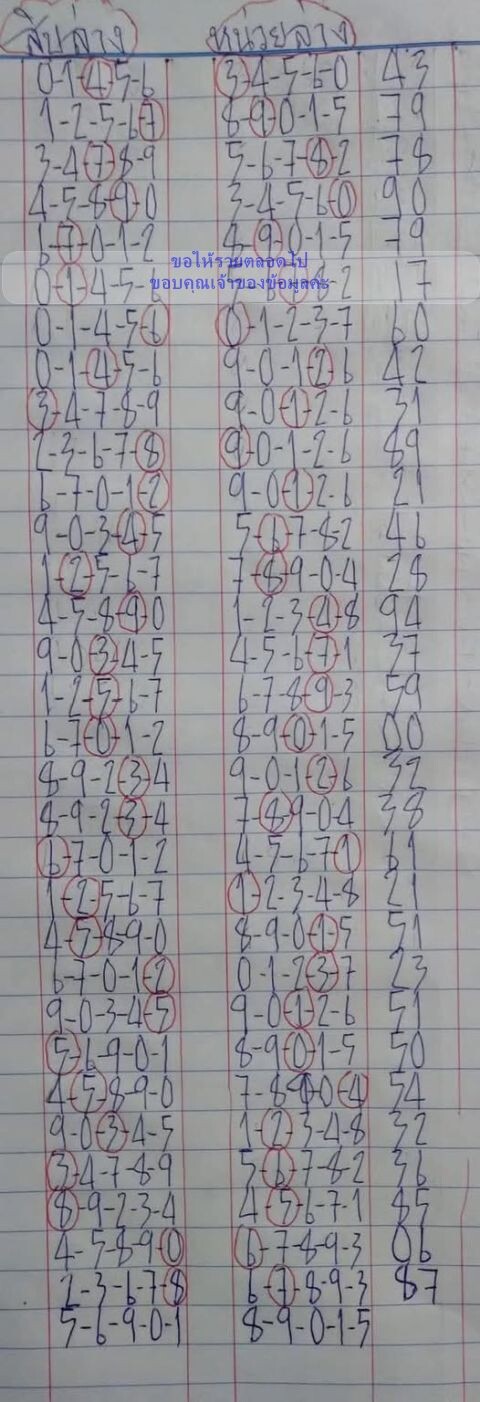 สิบล่าง หน่วยล่าง
0-1-4-5-6 3-4-5-6-0 43
1-2-5-6-7 8-9-0-1-5 79
3-4-7-8-9 5-6-7-8-2 78
4-5-8-9-0 3-4-5-6-0 90
6-7-0-1-2 8-9-0-1-5 79
ขอให้รวยตลอดไป
ขอบคุณเจ้าของข้อมูลค่ะ
0-1-4-5-6 17
0-1-4-5-6 0-1-2-3-7 60
0-1-4-5-6 9-0-1-2-6 42
3-4-7-8-9 9-0-1-2-6 31
2-3-6-7-8 9-0-1-2-6 89
6-7-0-1-2 9-0-1-2-6 21
9-0-3-4-5 5-6-7-8-2 46
1-2-5-6-7 7-8-9-0-4 28
4-5-8-9-0 1-2-3-4-8 94
9-0-3-4-5 4-5-6-7-1 37
1-2-5-6-7 6-7-8-9-3 59
6-7-0-1-2 8-9-0-1-5 00
8-9-2-3-4 9-0-1-2-6 32
8-9-2-3-4 7-8-9-0-4 38
6-7-0-1-2 4-5-6-7-1 61
1-2-5-6-7 1-2-3-4-8 21
4-5-8-9-0 8-9-0-1-5 51
6-7-0-1-2 0-1-2-3-7 23
9-0-3-4-5 9-0-1-2-6 51
5-6-9-0-1 8-9-0-1-5 50
4-5-8-9-0 7-8-9-0-4 54
9-0-3-4-5 1-2-3-4-8 32
3-4-7-8-9 5-6-7-8-2 36
8-9-2-3-4 4-5-6-7-1 85
4-5-8-9-0 6-7-8-9-3 06
2-3-6-7-8 6-7-8-9-3 87
5-6-9-0-1 8-9-0-1-5